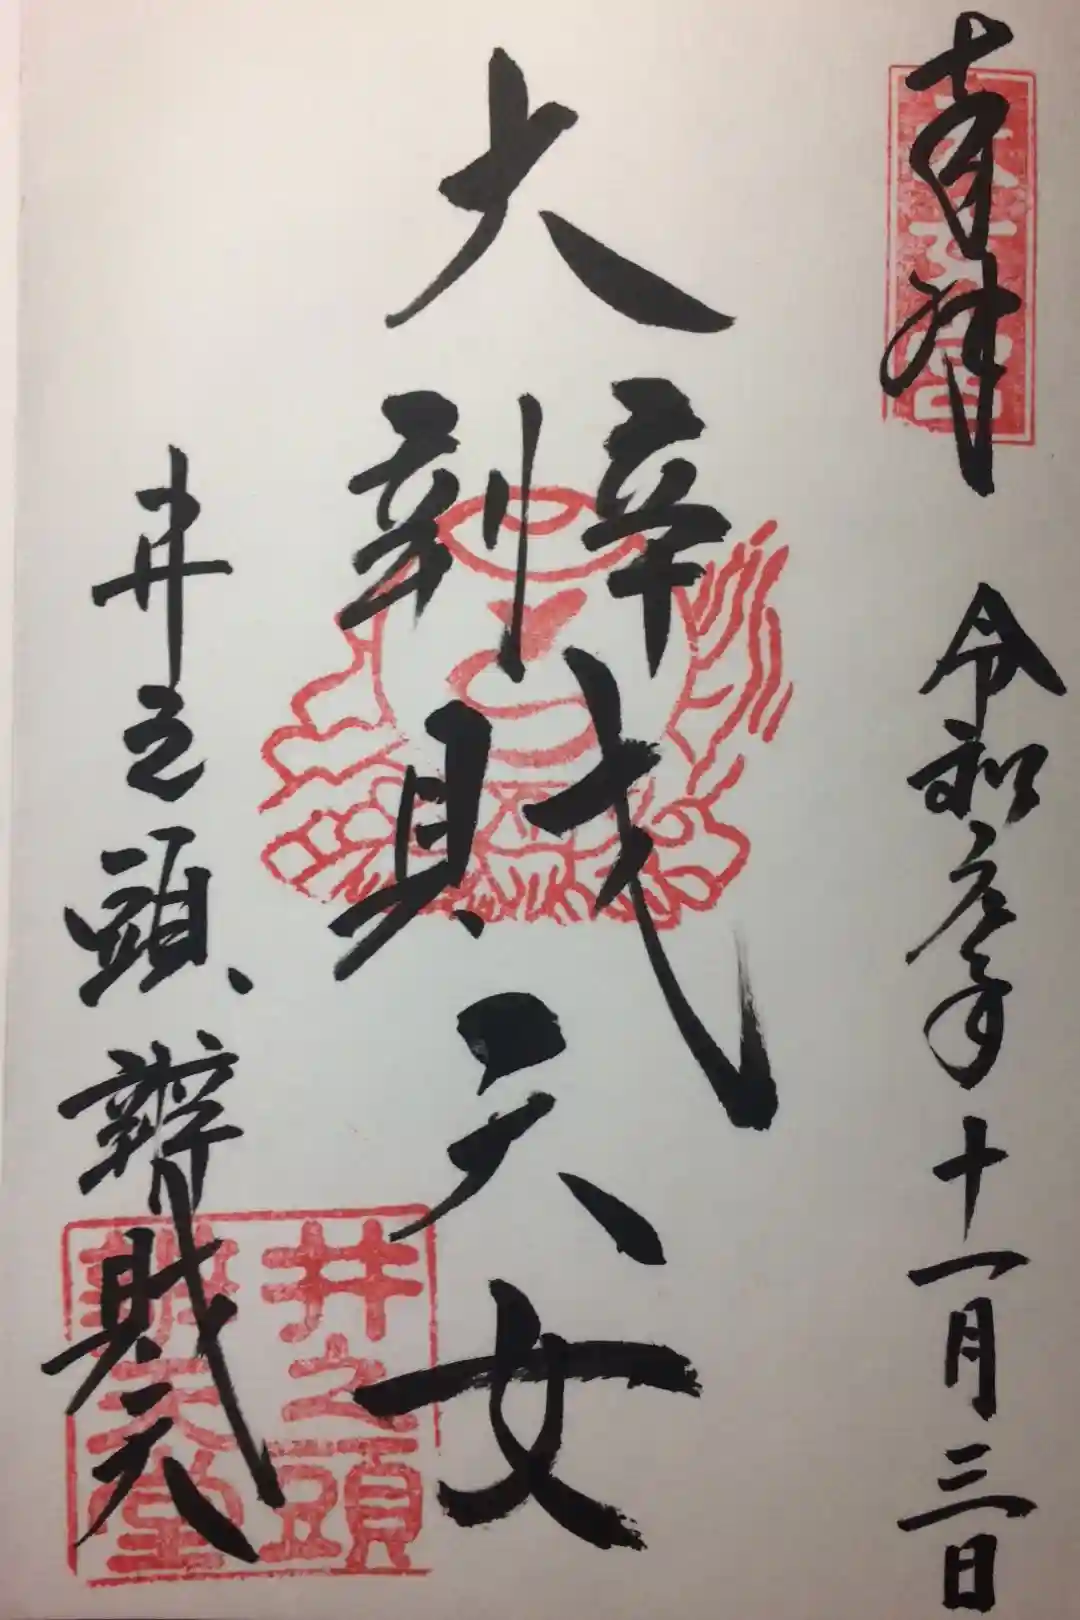 奉拝 令和元年十一月三日
大辨財天女
井之頭辨財天
井之頭
辨天堂